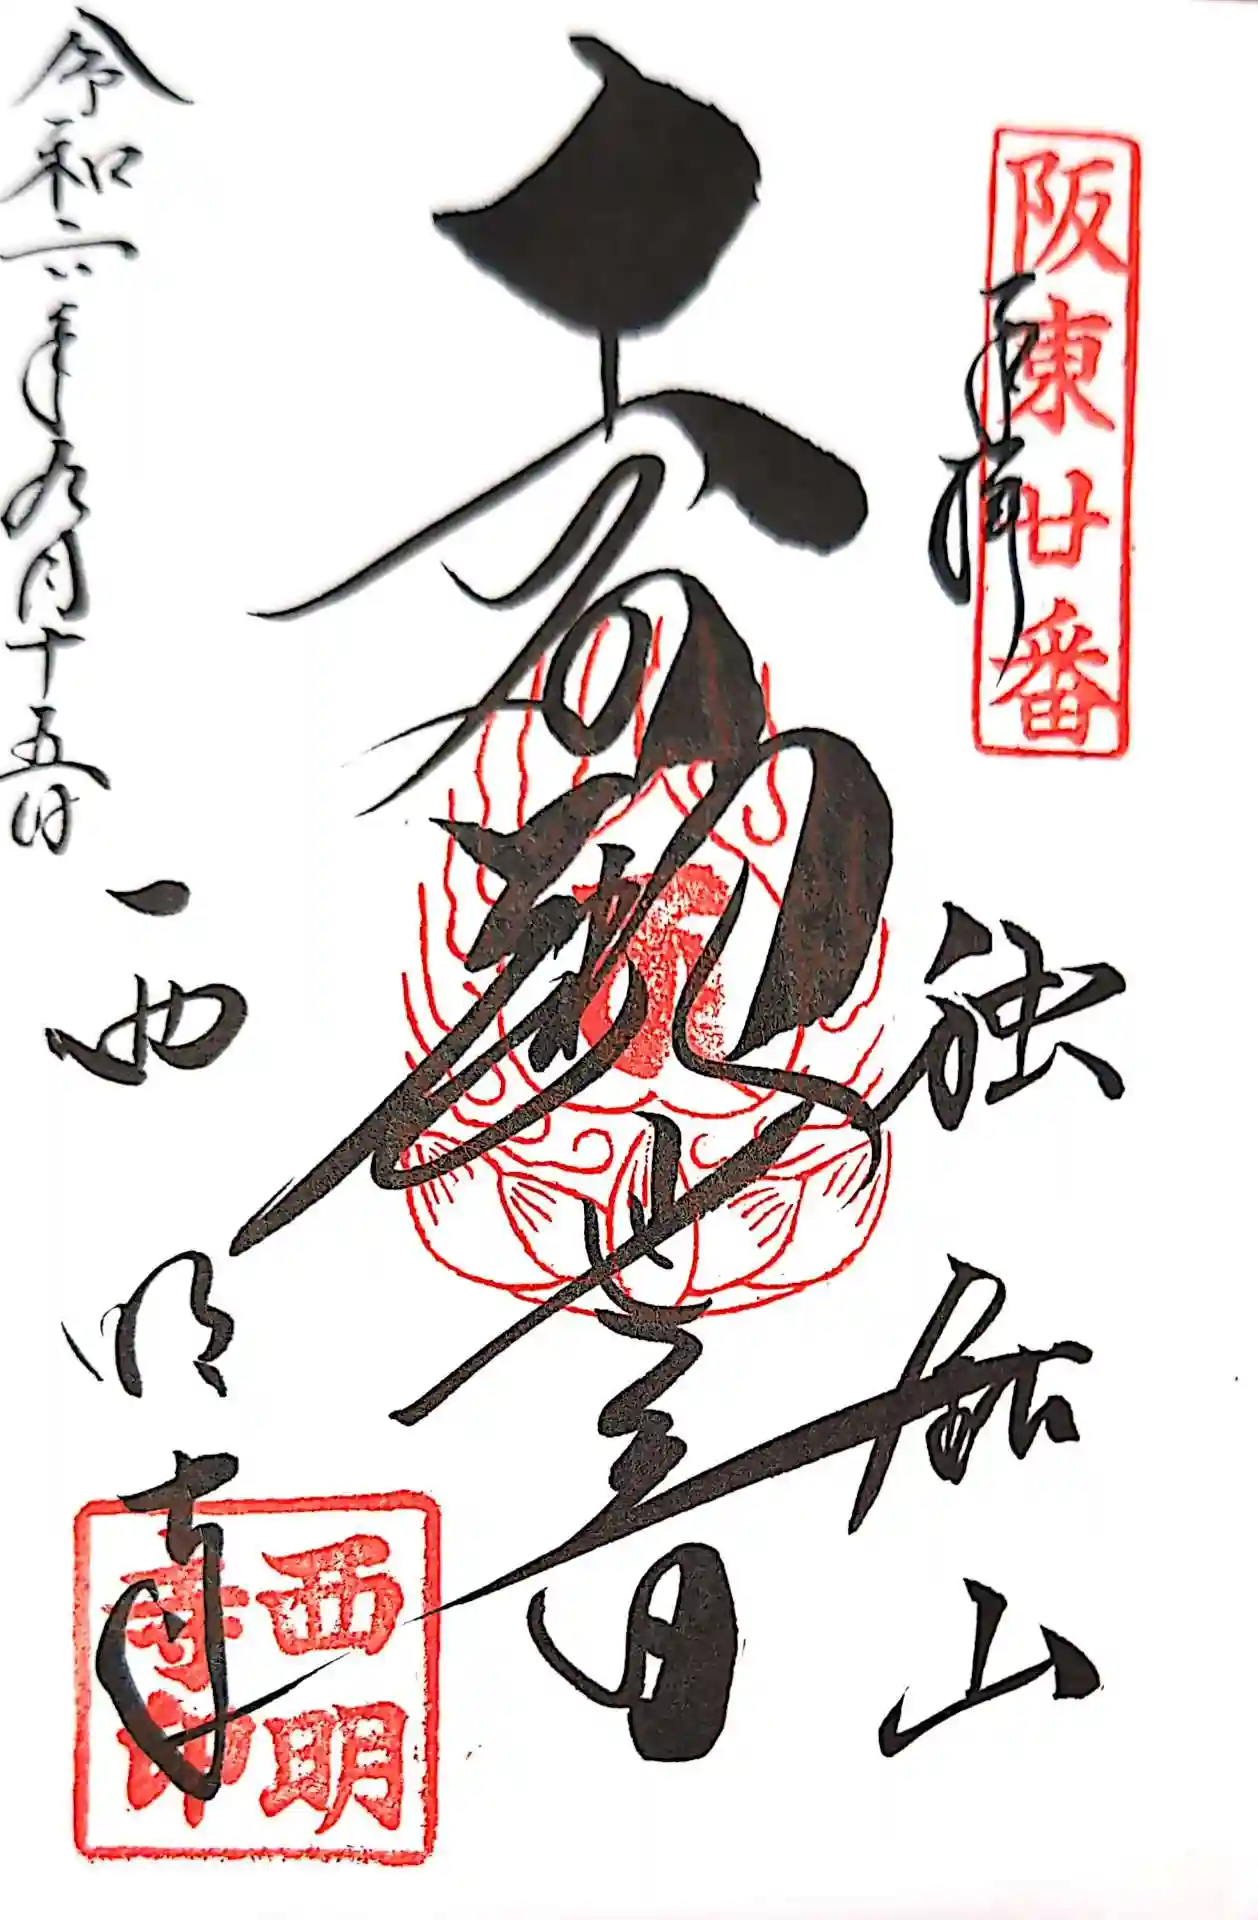 阪東廿番
奉拝
独鈷山
観世音
令和六年九月十五日
西明寺
西明
寺印